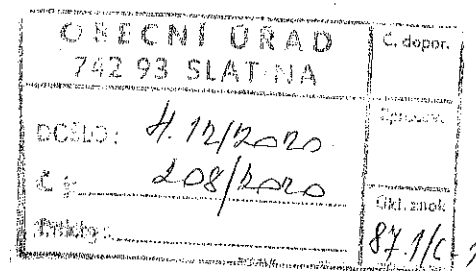 OBECNÍ ÚŘAD
742 93 SLATINA
Č. dopor.
DOŠLO: 4.12/2020
Zpracov.
Č.j. 208/2020
Ukl. znak
Přílohy:
87.1/C-